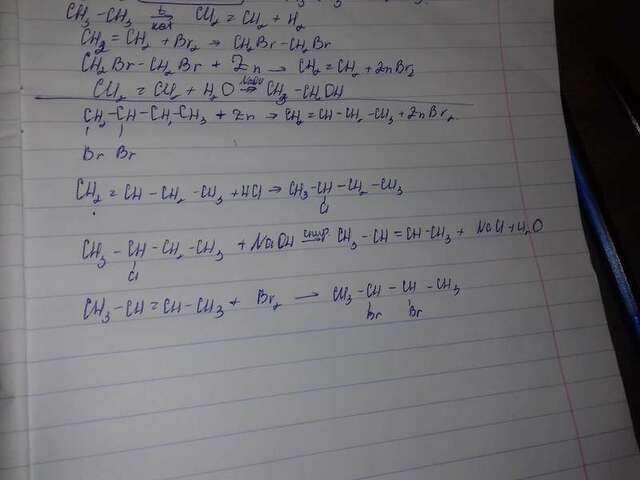 CH3-CH3 t/кат CH2=CH2 + H2
CH2=CH2 + Br2 → CH2Br-CH2Br
CH2Br-CH2Br + Zn → CH2=CH2 + ZnBr2
CH2=CH2 + H2O → CH3-CH2OH
CH2-CH-CH2-CH3 + Zn → CH2=CH-CH2-CH3 + ZnBr2
Br Br
CH2=CH-CH2-CH3 + HCl → CH3-CH-CH2-CH3
Cl
CH3-CH-CH2-CH3 + NaOH спирт → CH3-CH=CH-CH3 + NaCl + H2O
Cl
CH3-CH=CH-CH3 + Br2 → CH3-CH-CH-CH3
Br Br